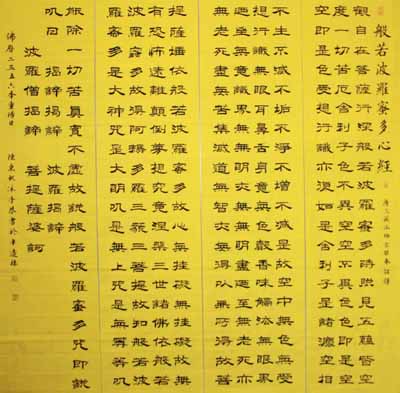 般若波羅蜜多心經
唐三藏法師玄奘奉詔譯
觀自在菩薩行深般若波羅蜜多時照見五蘊皆空
度一切苦厄舍利子色不異空空不異色色即是空
空即是色受想行識亦復如是舍利子是諸法空相
不生不滅不垢不淨不增不減是故空中無色無受
想行識無眼耳鼻舌身意無色聲香味觸法無眼界
乃至無意識界無無明亦無無明盡乃至無老死亦
無老死盡無苦集滅道無智亦無得以無所得故菩
提薩埵依般若波羅蜜多故心無掛礙無掛礙故無
有恐怖遠離顛倒夢想究竟涅槃三世諸佛依般若
波羅蜜多故得阿耨多羅三藐三菩提故知般若波
羅蜜多是大神咒是大明咒是無上咒是無等等咒
能除一切苦真實不虛故說般若波羅蜜多咒即說
咒曰 揭諦揭諦 波羅揭諦
波羅僧揭諦 菩提薩婆訶
佛曆二五五六年重陽日